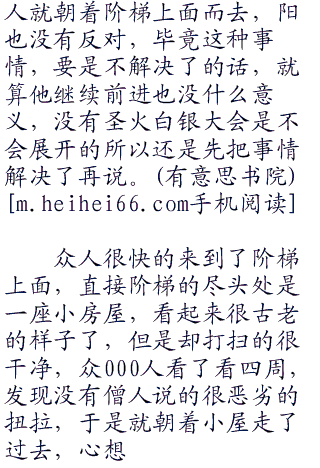 人就朝着阶梯上面而去，阳
也没有反对，毕竟这种事
情，要是不解决了的话，就
算他继续前进也没什么意
义，没有圣火白银大会是不
会展开的所以还是先把事情
解决了再说。(有意思书院)
[m.heihei66.com手机阅读]
众人很快的来到了阶梯
上面，直接阶梯的尽头处是
一座小房屋，看起来很古老
的样子了，但是却打扫的很
干净，众000人看了看四周，
发现没有僧人说的很恶劣的
扭拉，于是就朝着小屋走了
过去，心想